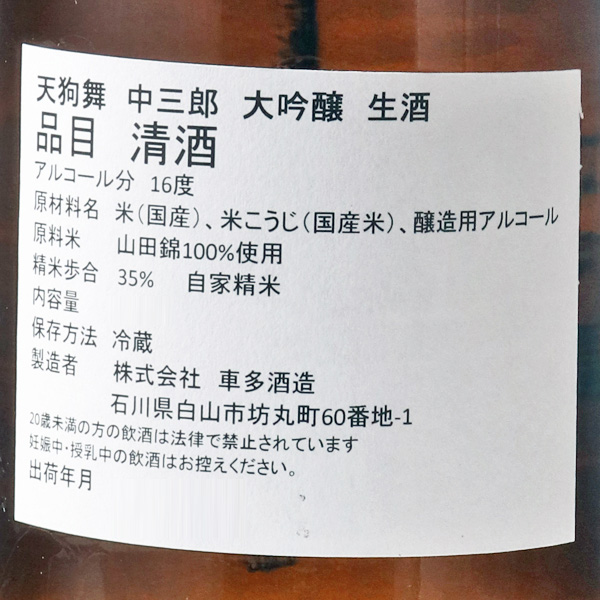 天狗舞　中三郎　大吟醸　生酒
品目　清酒
アルコール分　16度
原材料名　米（国産）、米こうじ（国産米）、醸造用アルコール
原料米　山田錦100%使用
精米歩合　35%　自家精米
内容量
保存方法　冷蔵
製造者　株式会社　車多酒造
石川県白山市坊丸町60番地-1
20歳未満の方の飲酒は法律で禁止されています
妊娠中・授乳中の飲酒はお控えください。
出荷年月